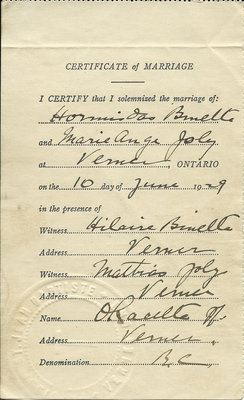 CERTIFICATE of MARRIAGE
I CERTIFY that I solemnized the marriage of:
Hormisdas Binette
and Marie Ange Joly
at Verner, ONTARIO
on the 10 day of June 1929
in the presence of
Witness Hilaire Binette
Address Verner
Witness Mathias Joly
Address Verner
Name
Address Verner,
Denomination R.C.